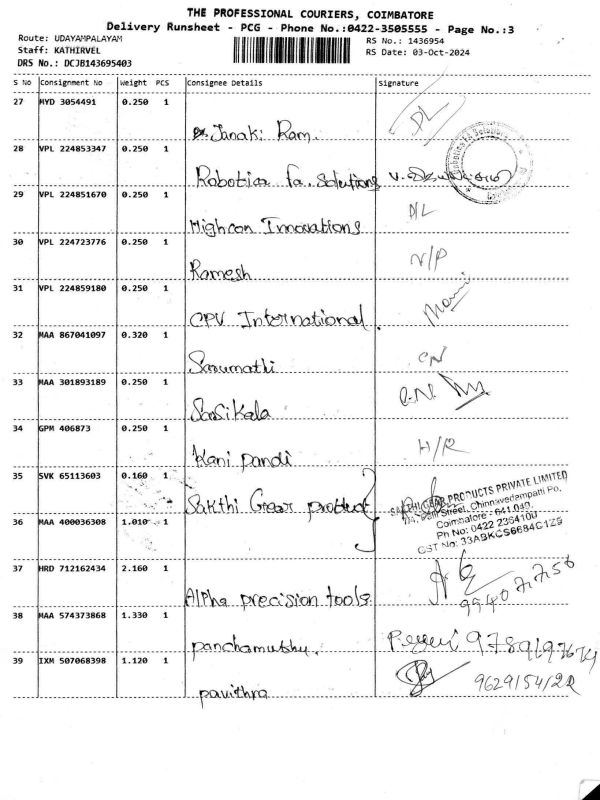 THE PROFESSIONAL COURIERS, COIMBATORE
Delivery Runsheet - PCG - Phone No.:0422-3505555 - Page No.:3
Route: UDAYAMPALAYAM
Staff: KATHIRVEL
DRS No.: DCJB143695403
RS No.: 1436954
RS Date: 03-Oct-2024
S No Consignment No Weight PCS Consignee Details Signature
27 MYD 3054491 0.250 1
Janaki Ram. DL
28 VPL 224853347 0.250 1
Robotics fa. Solutions
29 VPL 224851670 0.250 1
Highcon Innovations D/L
30 VPL 224723776 0.250 1
Ramesh N/P
31 VPL 224859180 0.250 1
CPV International. Mani
32 MAA 867041097 0.320 1
Sarumathi
33 MAA 301893189 0.250 1
Sasikala
34 GPM 406873 0.250 1
Kani pandi H/R
35 SVK 65113603 0.160 1
Sakthi Gear product
SAKTHI GEAR PRODUCTS PRIVATE LIMITED
Street, Chinnavedampatti Po,
Coimbatore - 641 049.
Ph No: 0422
GST No: 33ABKCS6684C1Z9
36 MAA 400036308 1.010 1
37 HRD 712162434 2.160 1
Alpha precision tools.
38 MAA 574373868 1.330 1
panchamuthu.
39 IXM 507068398 1.120 1
pavithra